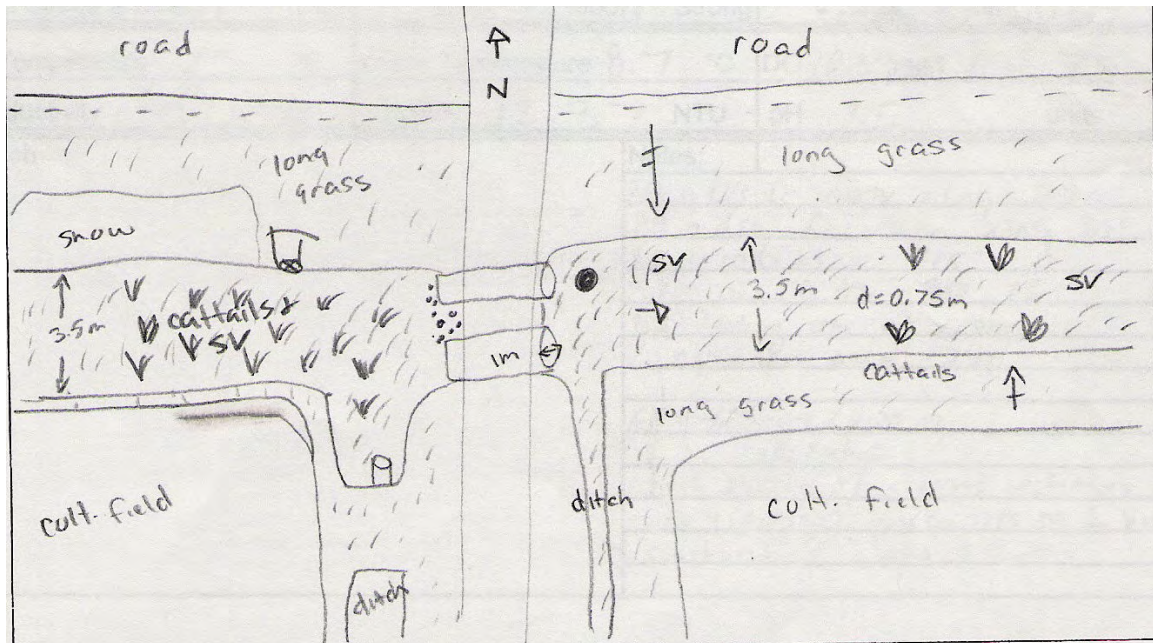 road
N
road
long
grass
long grass
snow
3.5m
cattails &
SV
SV
3.5m
d=0.75m
SV
1m
cattails
long grass
cult. field
ditch
cult. field
ditch
NTU